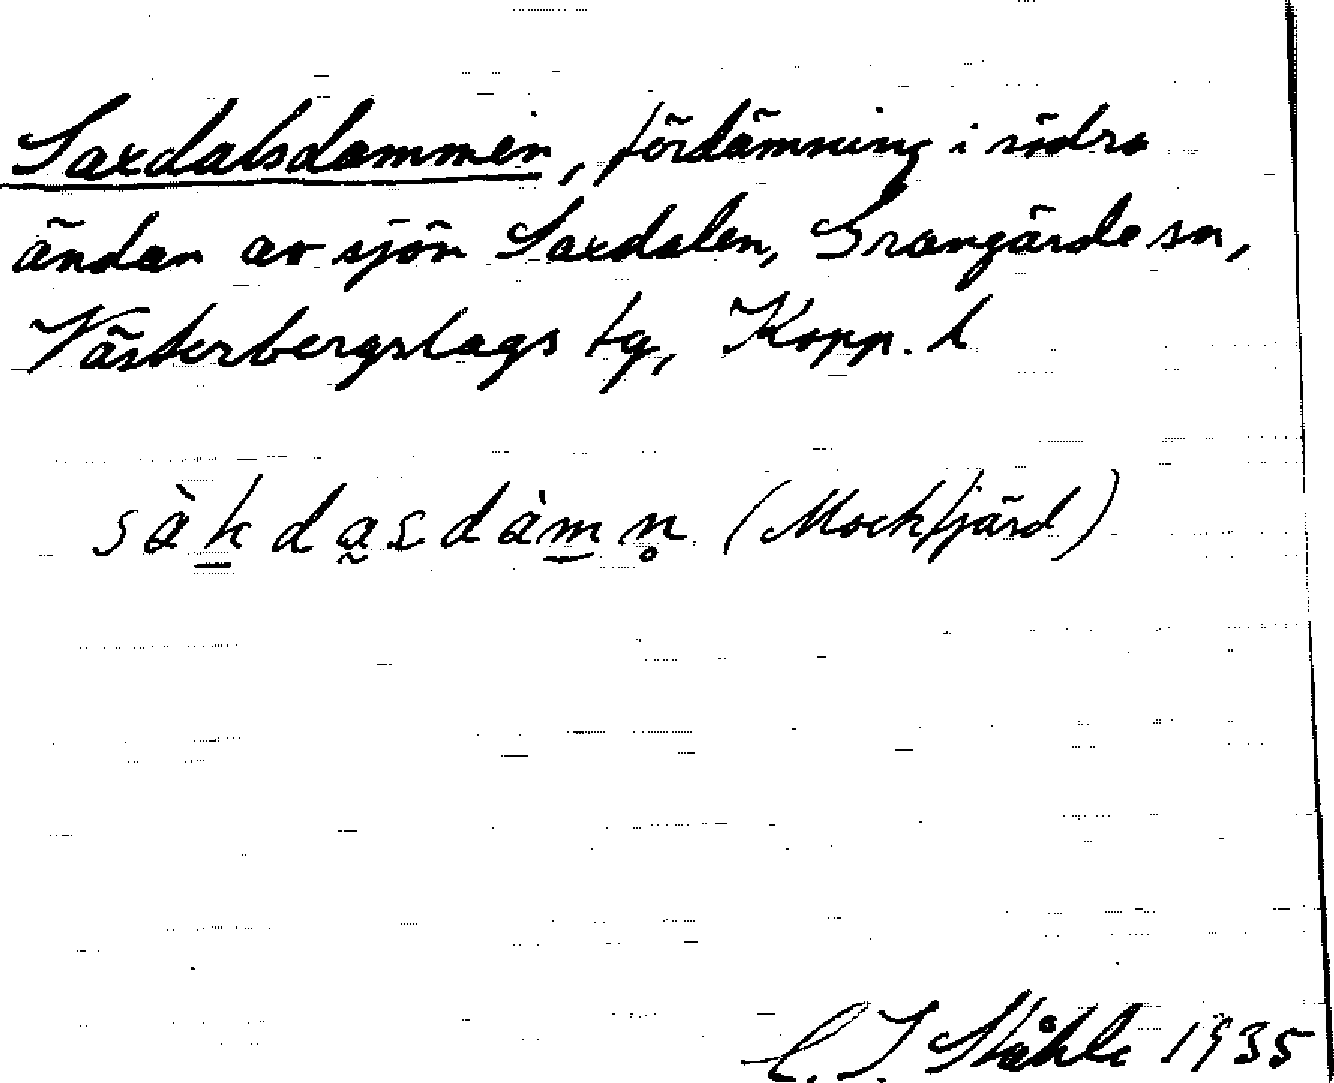 Saxdalsdammen, fördämning i södra
ändan av sjön Saxdalen, Grangärde sn,
Västerbergslags tg, Kopp. l
sàk̲da̰sdàm̲n̥ (Mockfjärd)
C. I. Ståhle 1935